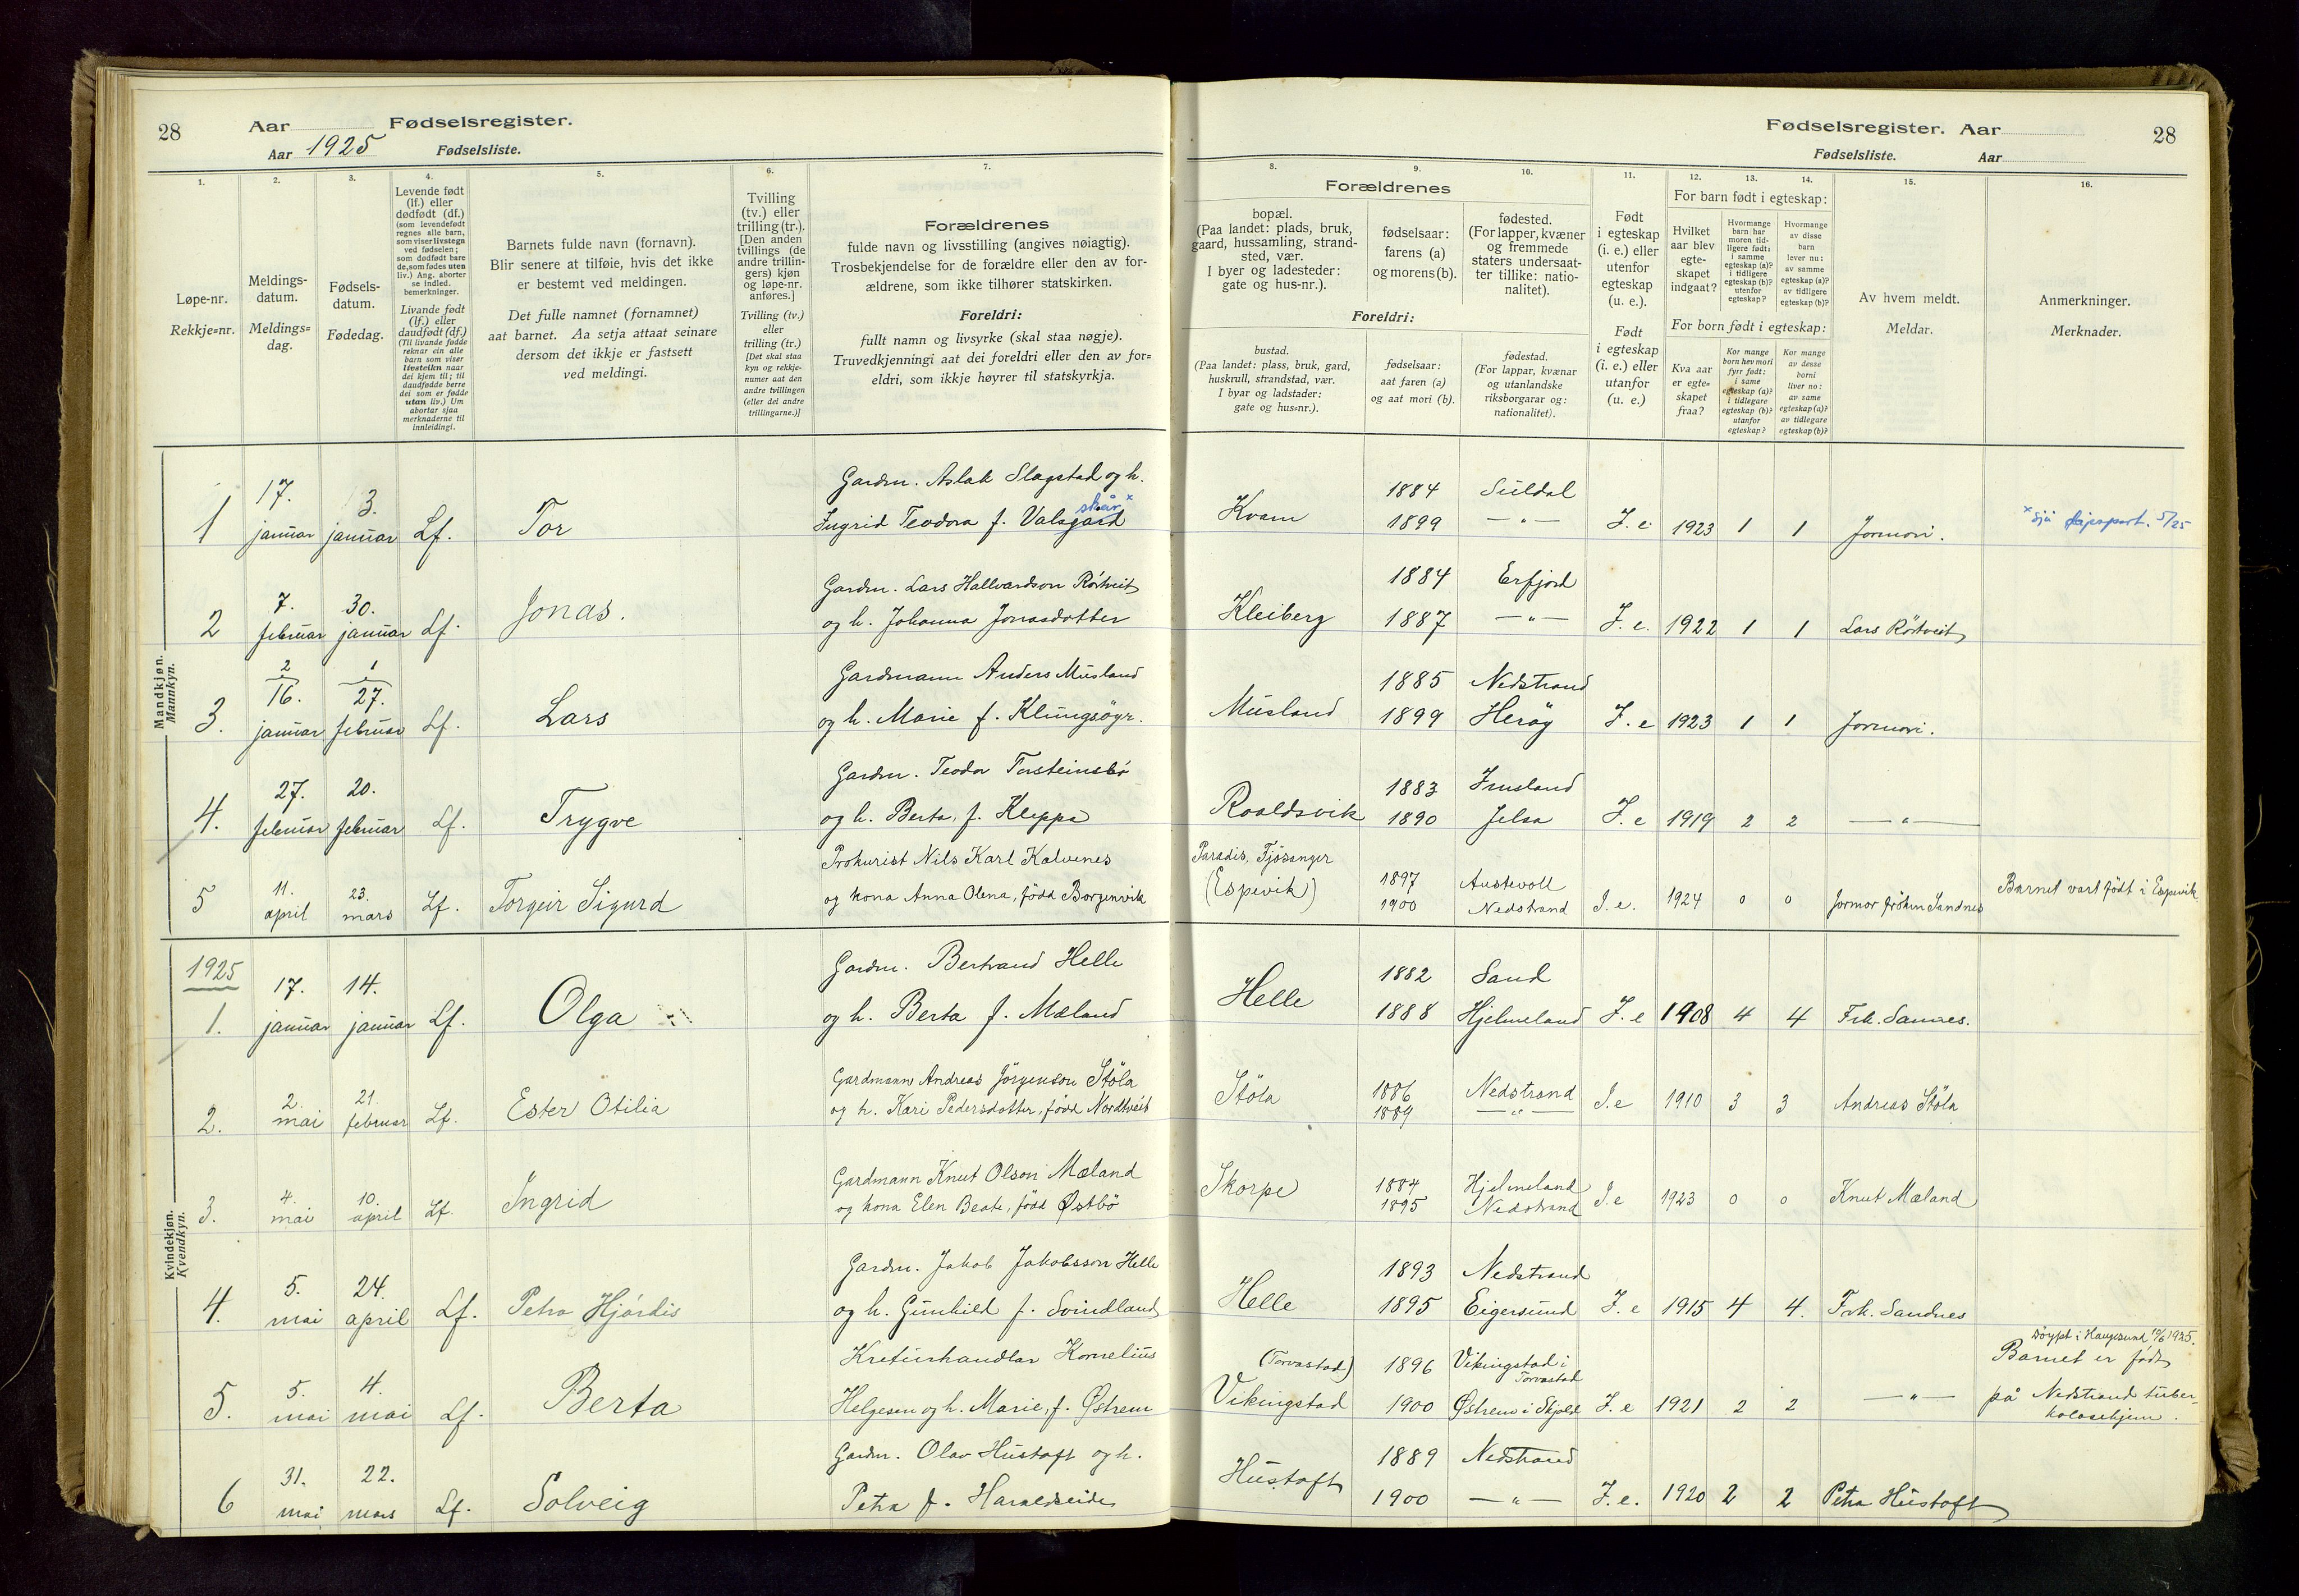 28
Aar
Fødselsregister.
Aar 1925
Fødselsliste.
1.
Løpe-nr.
Rekkje=nr.
2.
Meldings-
datum.
Meldings=
dag.
3.
Fødsels-
datum.
Fødedag.
4.
Levende født
(lf.) eller
dødfødt (df.)
(som levendefødt
regnes alle barn,
som viser livstegn
ved fødselen;
som dødfødt bare
de, som fødes uten
liv.) Ang. aborter
se indled.
bemerkninger.
Livande født
(lf.) eller
daudfødt (df.)
(Til livande fødde
reknar ein alle
barn som viser
livsteikn naar
dei kjem til; til
daudfødde berre
dei som er fødde
utan liv.) Um
abortar sjaa
merknaderne til
innleidingi.
5.
Barnets fulde navn (fornavn).
Blir senere at tilføie, hvis det ikke
er bestemt ved meldingen.
Det fulle namnet (fornamnet)
aat barnet. Aa setja attaat seinare
dersom det ikkje er fastsett
ved meldingi.
6.
Tvilling
(tv.) eller
trilling (tr.).
[Den anden
tvillings (de
andre trillin-
gers) kjøn
og løpe-nr.
anføres.]
Tvilling (tv.)
eller
trilling (tr.)
[Det skal staa
kyn og rekkje-
numer aat den
andre tvillingen
(eller dei andre
trillingarne.)]
7.
Forældrenes
fulde navn og livsstilling (angives nøiagtig).
Trosbekjendelse for de forældre eller den av for-
ældrene, som ikke tilhører statskirken.
Foreldri:
fullt namn og livsyrke (skal staa nøgje).
Truvedkjenningi aat dei foreldri eller den av for=
eldri, som ikkje høyrer til statskyrkja.
Mandkjøn.
Mannkyn.
1
17.
januar
3.
januar
Lf.
Tor
Gardm. Aslak Slagstad og h.
skår x
Ingrid Teodora f. Valsgard
2
7.
februar
30.
januar
Lf.
Jonas.
Gardm. Lars Hallvardson Rörtveit
og h. Johanna Jonasdotter
3.
2
16.
januar
1
27.
februar
Lf.
Lars
Gardmann Anders Musland
og h. Marie f. Klungsöyr.
4.
27.
februar
20.
februar
Lf.
Trygve
Gardm. Teodor Torsteinsbö
og h. Berta, f. Kleppa
5
11.
april
23.
mars
Lf.
Torgeir Sigurd
Prokurist Nils Karl Kalvenes
og kona Anna Olena, född Borgenvik
Kvindekjøn.
Kvendkyn.
1925
1.
17.
januar
14.
januar
Lf.
Olga
Gardm. Bertrand Helle
og h. Berta f. Mæland
2.
2.
mai
21.
februar
Lf.
Ester Otilia
Gardmann Andreas Jörgenson Stöla
og h. Kari Pedersdotter, född Nordtveit
3.
4.
mai
10.
april
Lf.
Ingrid
Gardmann Knut Olson Mæland
og kona Elen Beate, född Østbö
4.
5.
mai
24.
april
Lf.
Petra Hjördis
Gardm. Jakob Jakobsson Helle
og h. Gunhild f. Svindland
5.
5.
mai
4.
mai
Lf.
Berta
Kreturhandlar Kornelius
Helgesen og h. Marie, f. Østrem
6
31.
mai
22.
mars
Lf.
Solveig
Gardm. Olav Hustoft og h.
Petra f. Haraldseide
Fødselsregister. Aar
28
Fødselsliste.
Aar
8.
Forældrenes
bopæl.
(Paa landet: plads, bruk,
gaard, hussamling, strand-
sted, vær.
I byer og ladesteder:
gate og hus-nr.).
Foreldri:
bustad.
(Paa landet: plass, bruk, gard,
huskrull, strandstad, vær.
I byar og ladstader:
gate og hus=nr.).
9.
fødselsaar:
farens (a)
og morens (b).
fødselsaar:
aat faren (a)
og aat mori (b).
10.
fødested.
(For lapper, kvæner
og fremmede
staters undersaat-
ter tillike: natio-
nalitet).
fødestad.
(For lappar, kvænar
og utanlandske
riksborgarar og:
nationalitet).
11.
Født
i egteskap
(i. e.) eller
utenfor
egteskap
(u. e.).
Født
i egteskap
(i. e.) eller
utanfor
(u. e.)
12.
13.
14.
For barn født i egteskap:
Hvilket
aar blev
egte-
skapet
indgaat?
Hvormange
barn har
moren tid-
ligere født:
i samme
egteskap (a)?
i tidligere
egteskap (b)?
utenfor
egteskap?
Hvormange
av disse
barn
lever nu:
av samme
egteskap (a)?
av tidligere
egteskap (b)?
For born født i egteskap:
Kva aar
er egte=
skapet
fraa?
Kor mange
born hev mori
fyrr født:
i same
egteskap (a)?
i tidlegare
egteskap (b)?
utanfor
egteskap?
Kor mange
av desse
borni
liver no:
av same
egteskap (a)?
av tidlegare
egteskap (b)?
15.
Av hvem meldt.
Meldar.
16.
Anmerkninger.
Merknader.
Kvam
1884
1899
Suldal
— " —
I. e
1923
1
1
Jormori.
x Sjå 5/25
Kleiberg
1884
1887
Erfjord
— " —
I. e.
1922
1
1
Lars Rörtveit
Musland
1885
1899
Nedstrand
Heröy
I. e
1923
1
1
Jormori.
Roaldsvik
1883
1890
Imsland
Jelsa
I. e
1919
2
2
— " —
Paradis, Fjösanger
(Espevik)
1897
1900
Austevoll
Nedstrand
I. e.
1924
0
0
Jormor fröken Sandnes
Barnet vart födt i Espevik
Helle
1882
1888
Sand
Hjelmeland
I. e
1908
4
4
Frk. Sannes.
Stöla
1886
1889
Nedstrand
— " —
I. e
1910
3
3
Andreas Stöla
Skorpe
1884
1895
Hjelmeland
Nedstrand
I. e
1923
0
0
Knut Mæland
Helle
1893
1895
Nedstrand
Eigersund
I. e
1915
4
4.
Frk. Sandnes
(Torvastad)
Vikingstad
1896
1900
Vikingstad i
Torvastad
Østrem i Skjold
I. e
1921
2
2
— " —
Döypt i Haugesund 10/6 1925.
Barnet er födt
på Nedstrand tuber-
kolosehjem.
Hustoft
1889
1900
Nedstrand
— " —
I. e.
1920
2
2
Petra Hustoft